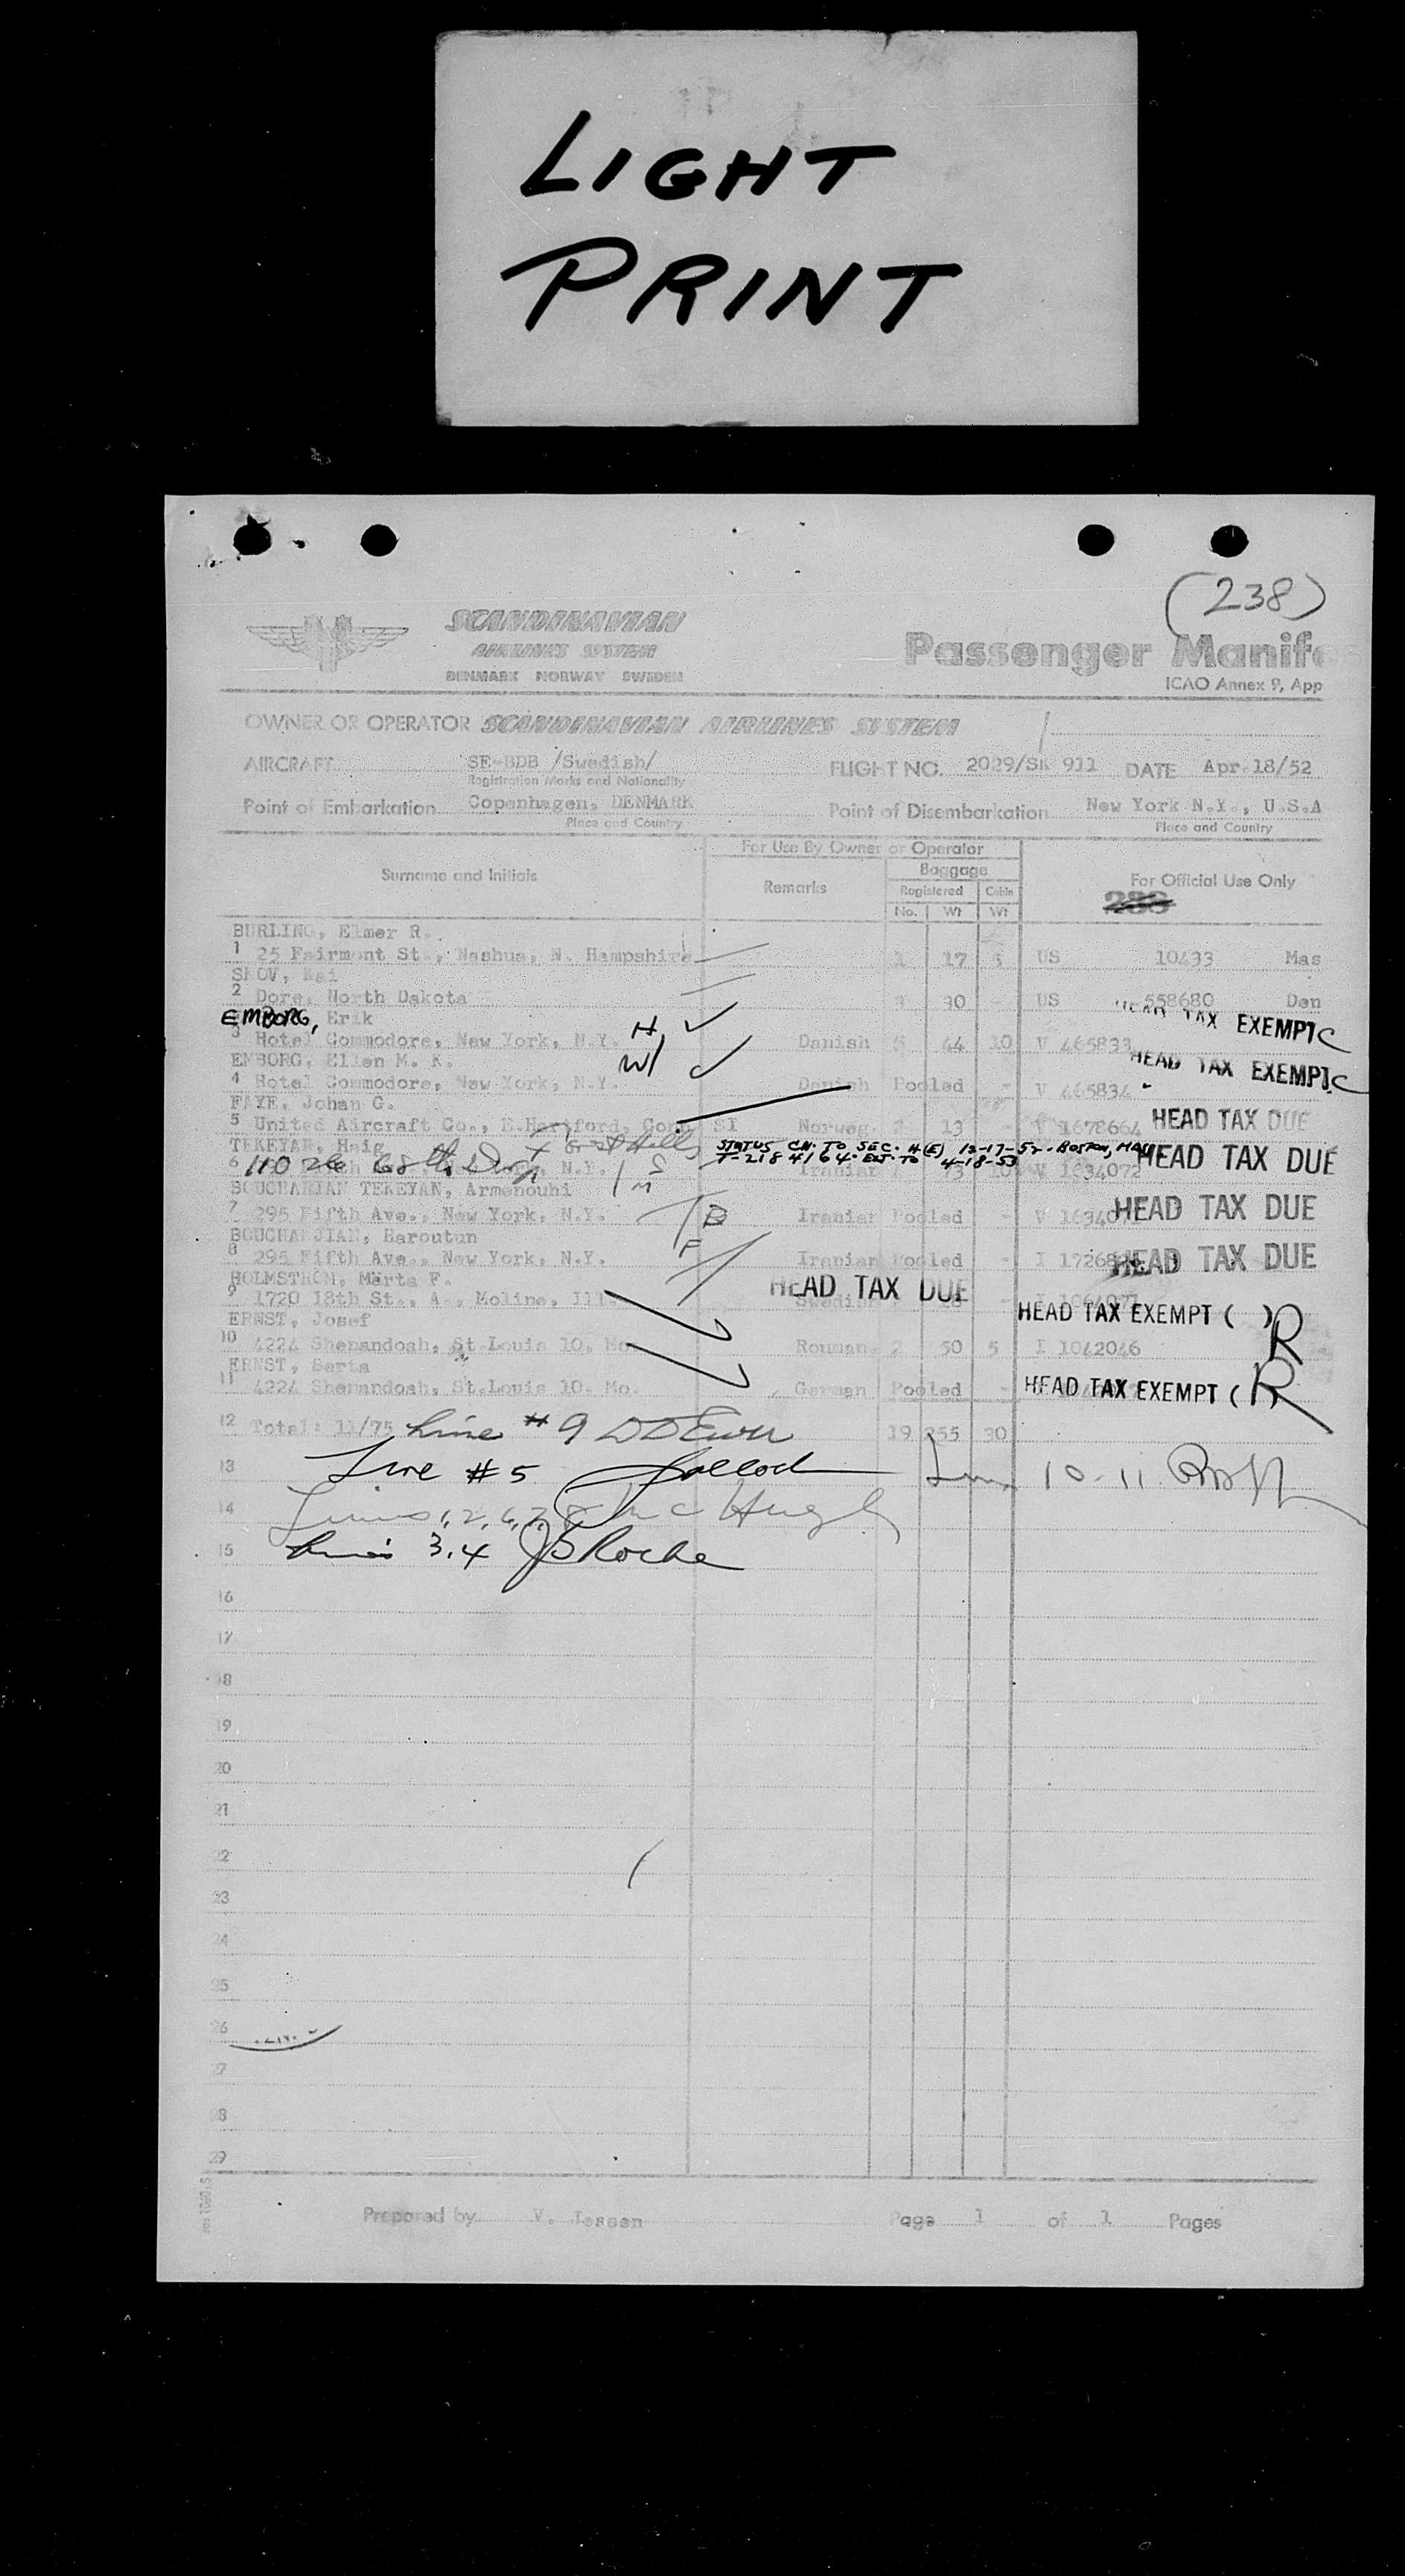 LIGHT
PRINT
(238)
SCANDINAVIAN
AIRLINES SYSTEM
DENMARK NORWAY SWEDEN
Passenger Manife
ICAO Annex 9, App
OWNER OR OPERATOR SCANDINAVIAN AIRLINES SYSTEM
AIRCRAFT SE-BDB /Swedish/ FLIGHT NO. 2029/SK 911 DATE Apr 18/52
Registration Marks and Nationality
Point of Embarkation Copenhagen, DENMARK Point of Disembarkation New York N.Y., U.S.A
Place and Country Place and Country
For Use By Owner or Operator
Surname and Initials Remarks Baggage For Official Use Only
Registered Cabin
No. Wt Wt
BURLING, Elmer R.
1 25 Fairmont St., Nashua, N. Hampshire 1 17 5 US 10433 Mas
SKOV, Kai
2 Dore, North Dakota 30 - US 558680 Den
EMBORG, Erik HEAD TAX EXEMPT C
3 Hotel Commodore, New York, N.Y. H Danish 5 44 10 V 465833
EMBORG, Ellen M. K. W HEAD TAX EXEMPT C
4 Hotel Commodore, New York, N.Y. Danish Pooled - V 465834
FAYE, Johan G.
5 United Aircraft Co., E.Hartford, Conn SI Norweg. 2 13 - V 1678664 HEAD TAX DUE
TEKEYAN, Haig Forest Hills STATUS CH. TO SEC. 4(E) 12-17-52. BOSTON, MA
6 110 68th N.Y. T-2184164. EXT. TO 4-18-53 Iranian V 1634072 HEAD TAX DUE
BOUCHARJIAN TEKEYAN, Armenouhi
7 295 Fifth Ave., New York, N.Y. Iranian Pooled - V HEAD TAX DUE
BOUCHARJIAN, Haroutun
8 295 Fifth Ave., New York, N.Y. Iranian Pooled - I HEAD TAX DUE
HOLMSTRÖM, Märta F. HEAD TAX DUE
9 1720 18th St., A., Moline, Ill. Swedish
ERNST, Josef HEAD TAX EXEMPT ( ) R
10 4224 Shenandoah, St.Louis 10, Mo. Rouman. 2 50 5 I 1042046
ERNST, Berta
11 4224 Shenandoah, St.Louis 10. Mo. German Pooled - HEAD TAX EXEMPT ( R
12 Total: 11/75 Line #9 19 255 30
13 Line #5 10-11
14 Lines 1,2,6,7,8 Mc Hugh
15 Lines 3.4 Roche
16
17
18
19
20
21
22
23
24
25
26
27
28
29
Prepared by V. Jessen Page 1 of 1 Pages